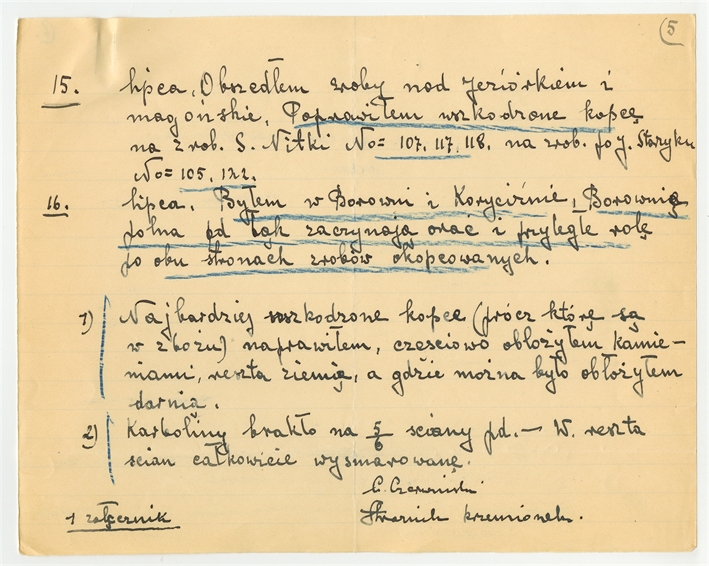 5
15. lipca. Obszedłem zroby nad Jeziórkiem i
magońskie. Poprawiłem uszkodzone kopcę
na zrob. S. Nitki No= 107. 117. 118. na zrob. po J. Starzyku
No= 105. 122.
16. lipca. Byłem w Borowni i Koryciźnie, Borownię
polna pd łąk zaczynają orać i przyległe rolę
po obu stronach zrobów okopcowanych.
1) Najbardziej uszkodzone kopce (prócz którę są
w zbożu) naprawiłem, czesciowo obłożyłem kamie-
niami, reszta ziemię, a gdzie można było obłożyłem
darnią.
2) Karboliny brakło na 5/6 sciany pd. – W. reszta
scian całkowicie wysmarowanę.
Czerwiński
1 załącznik
Strażnik krzemionek.